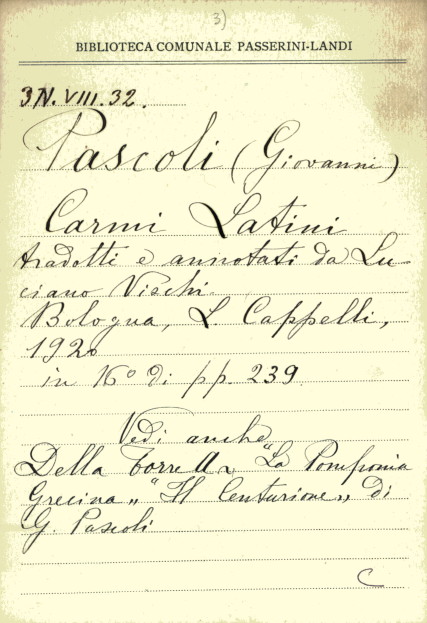 3)
BIBLIOTECA COMUNALE PASSERINI-LANDI
3N.VIII.32.
Pascoli (Giovanni)
Carmi Latini
tradotti e annotati da Lu-
ciano Vischi.
Bologna, L. Cappelli,
1920
in 16º di pp. 239
Vedi anche
Della Torre A. "La Pomponia
Grecina„ "Il Centurione„ di
G. Pascoli
C